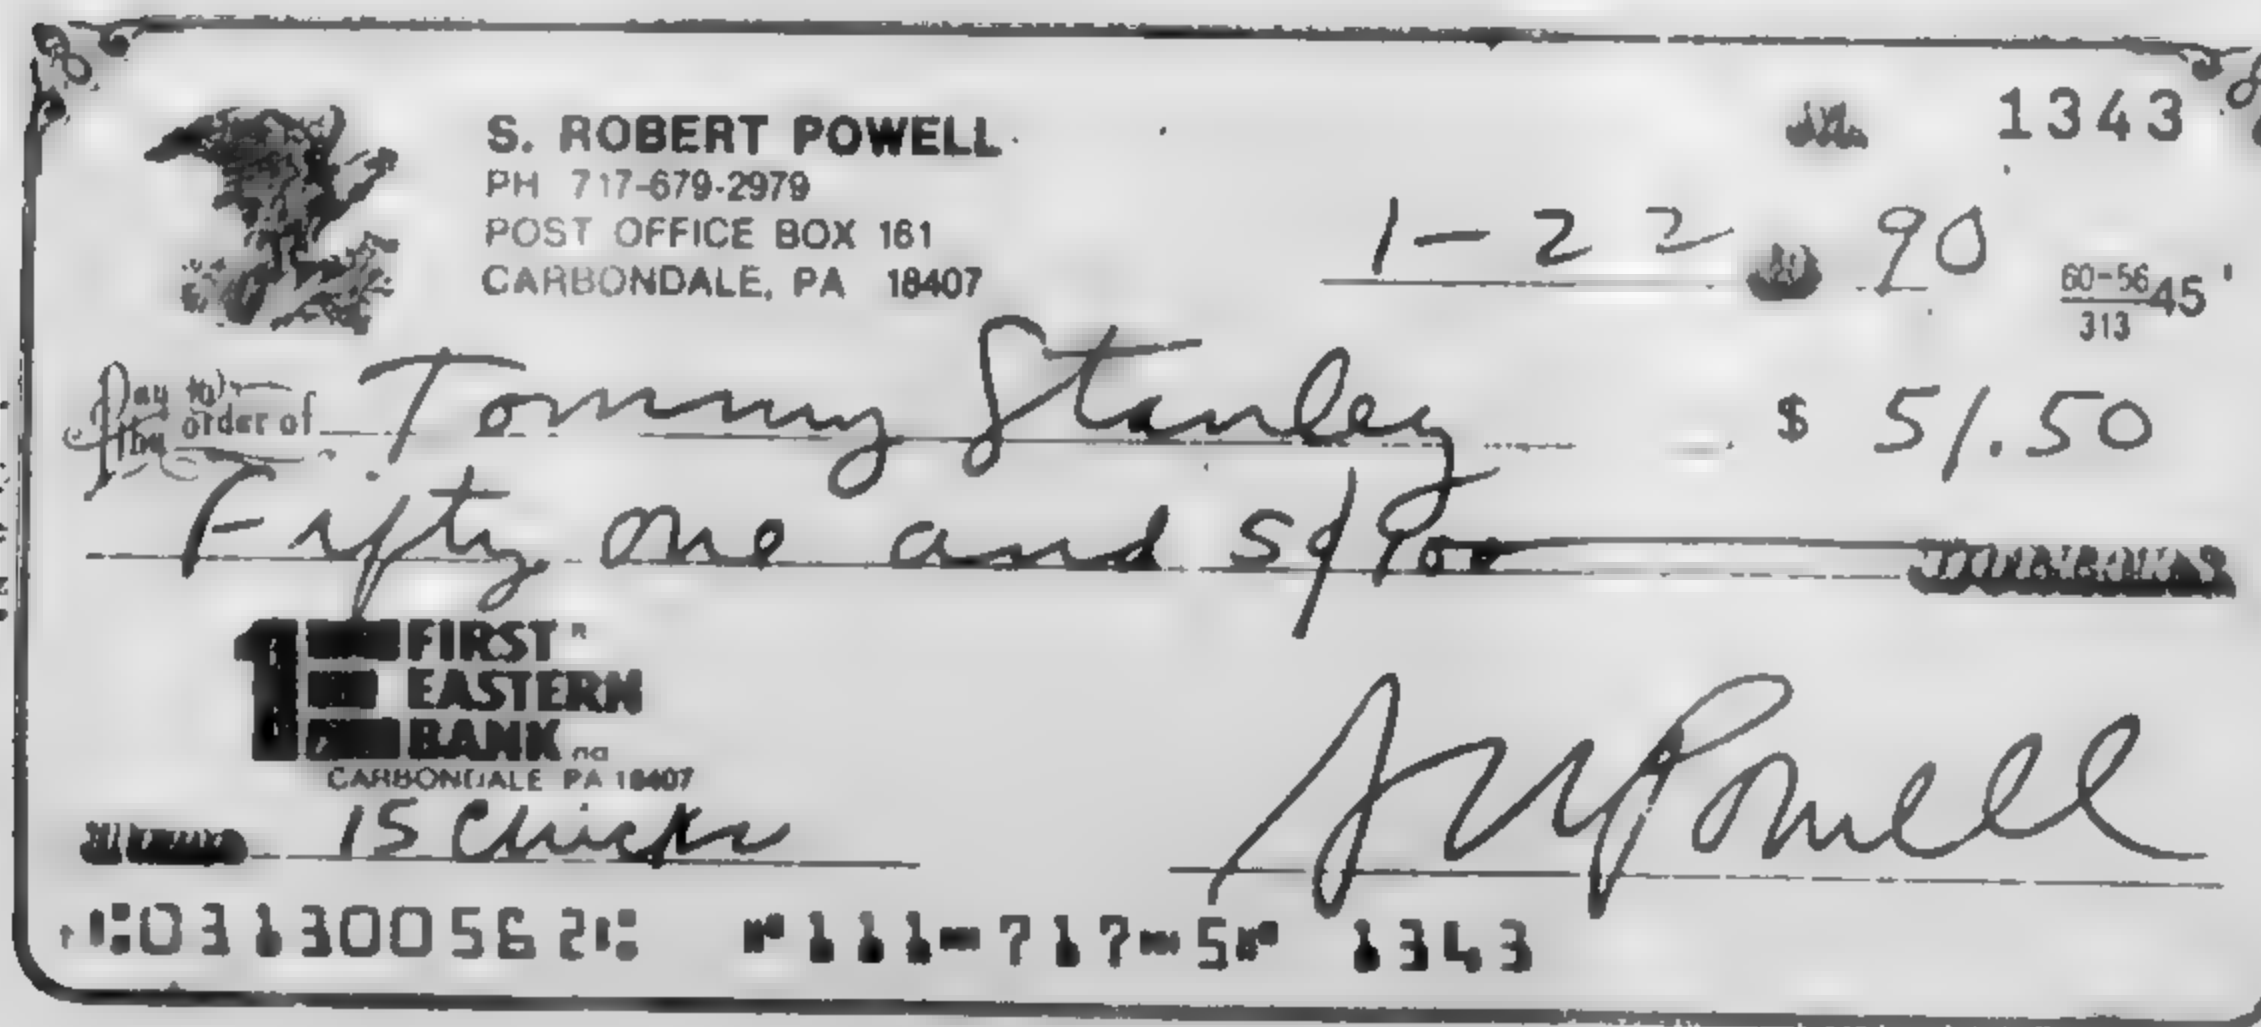 1343
S. ROBERT POWELL
PH 717-679-2979
POST OFFICE BOX 161
CARBONDALE, PA 18407
1-22 90
60-56 45
313
Pay to the order of Tommy Stanley $ 51.50
Fifty one and 50/100
1 FIRST
EASTERN
BANK na
CARBONDALE PA 18407
15 Chicks
SRPowell
⑆031300562⑆ ⑈111⑉717⑉5⑈ 1343